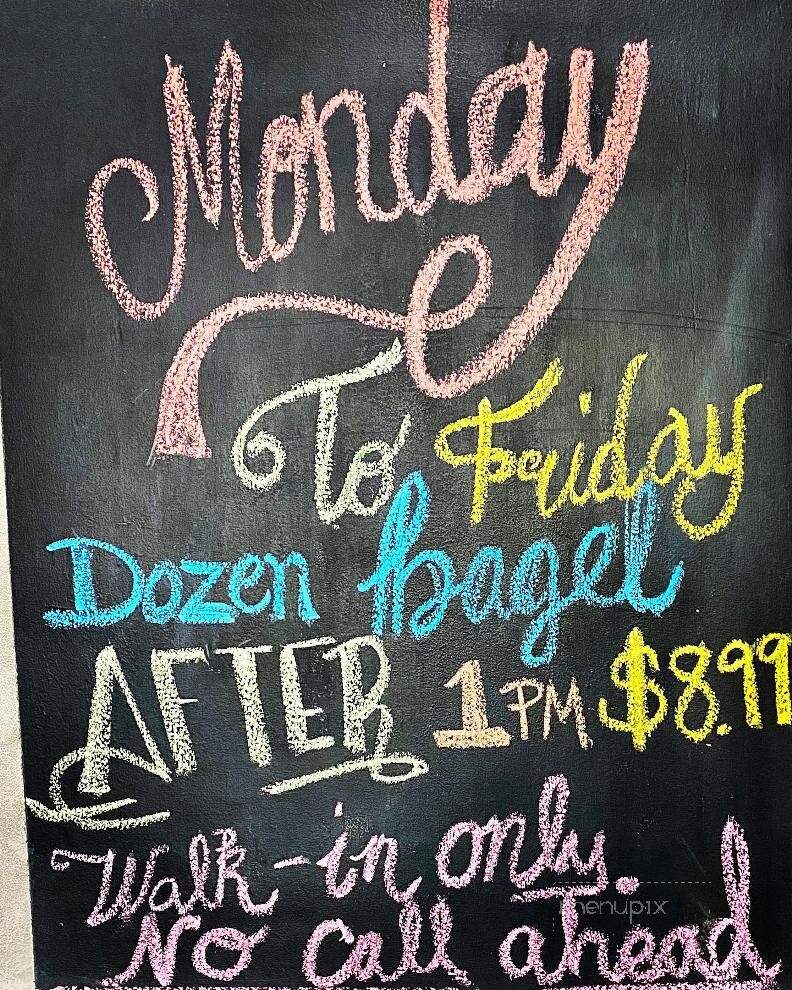 Monday
To Friday
Dozen bagel
AFTER 1PM $8.99
Walk-in only.
menupix
No Call ahead